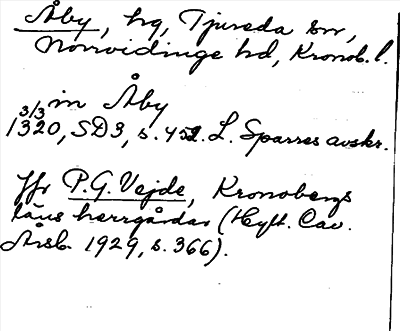 Åby, hg, Tjureda sn,
Norrvidinge hd, Kronob. l.
in Åby
3/3
1320, SD3, s. 452. L. Sparres avskr.
Jfr P.G. Vejde, Kronobergs
läns herrgårdar (Hylt. Cav.
Årsb. 1929, s. 366).